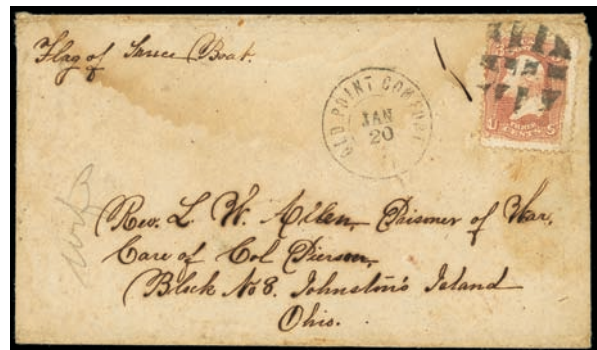 Flag of Truce Boat.
OLD POINT COMFORT
JAN
20
U THREE S
CENTS
wife
Rev. L. W. Allen, Prisoner of War,
Care of Col Pierson,
Block No 8. Johnston's Island
Ohio.